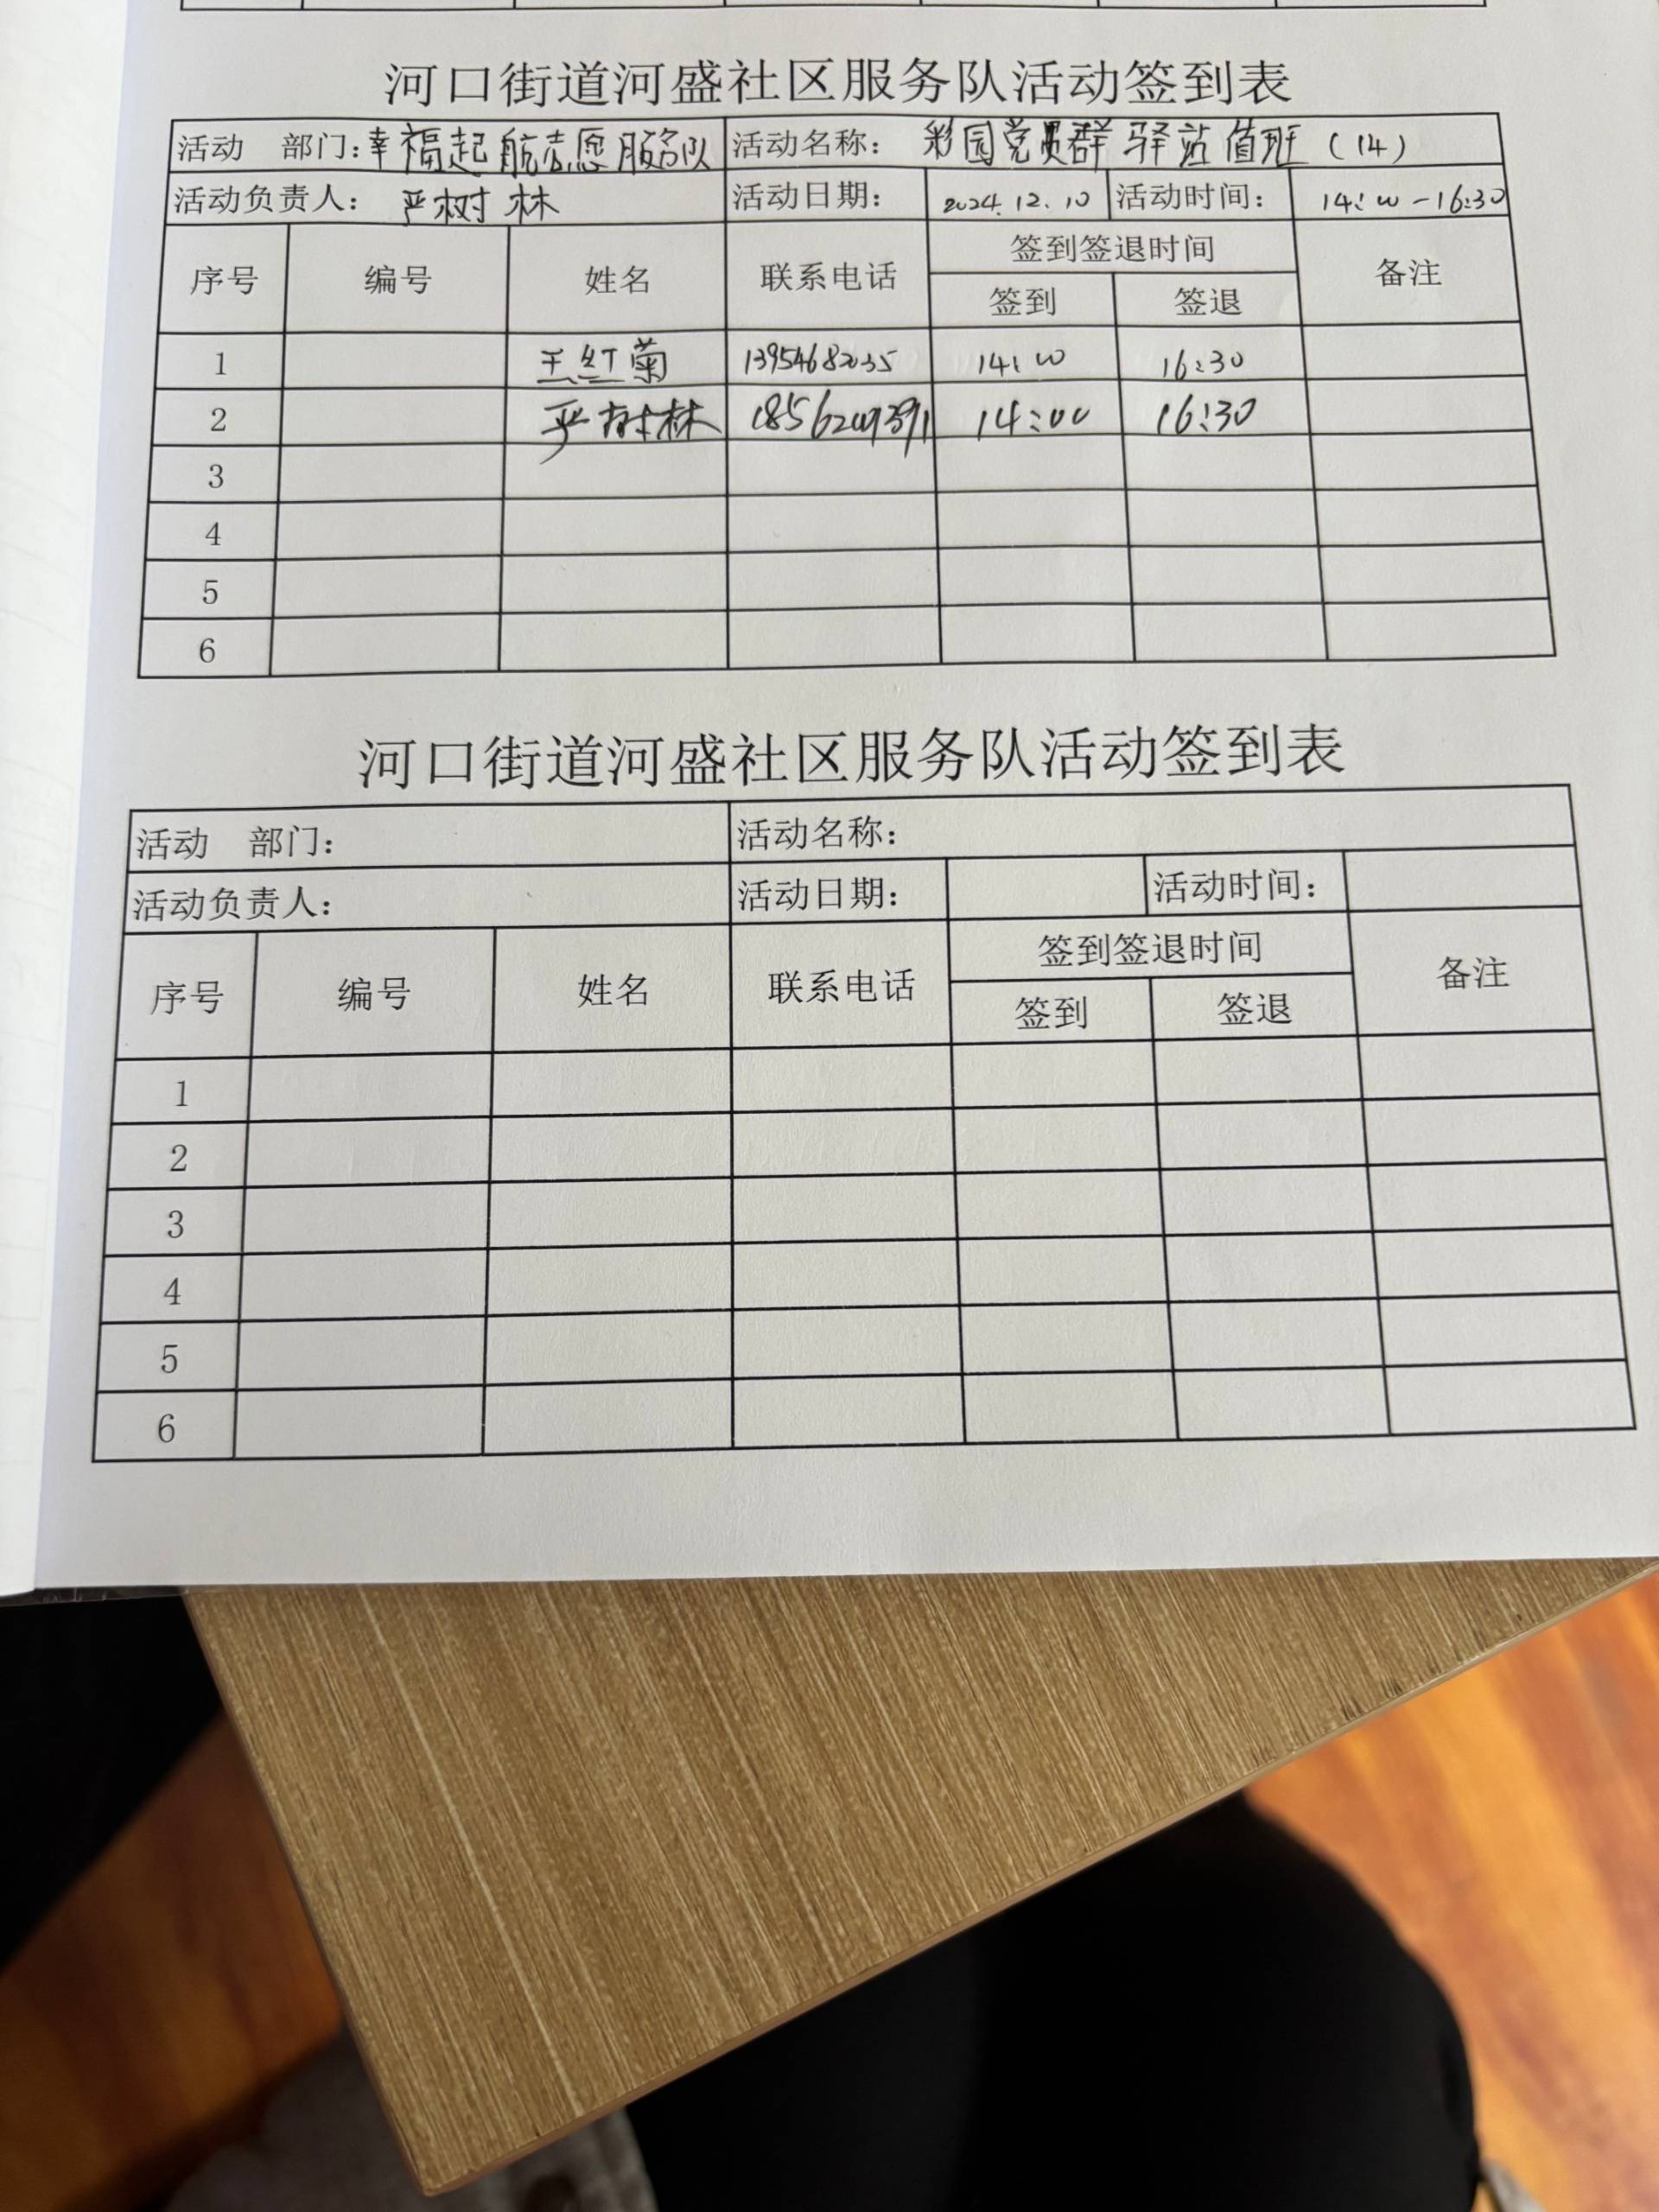 河口街道河盛社区服务队活动签到表
活动 部门：幸福起航志愿服务队 活动名称： 彩园党员群驿站值班（14）
活动负责人： 严树林 活动日期： 2024.12.10 活动时间： 14:00-16:30
序号 编号 姓名 联系电话 签到签退时间 备注
签到 签退
1 王红菊 13954682035 14:00 16:30
2 严树林 14:00 16:30
3
4
5
6
河口街道河盛社区服务队活动签到表
活动 部门： 活动名称：
活动负责人： 活动日期： 活动时间：
序号 编号 姓名 联系电话 签到签退时间 备注
签到 签退
1
2
3
4
5
6